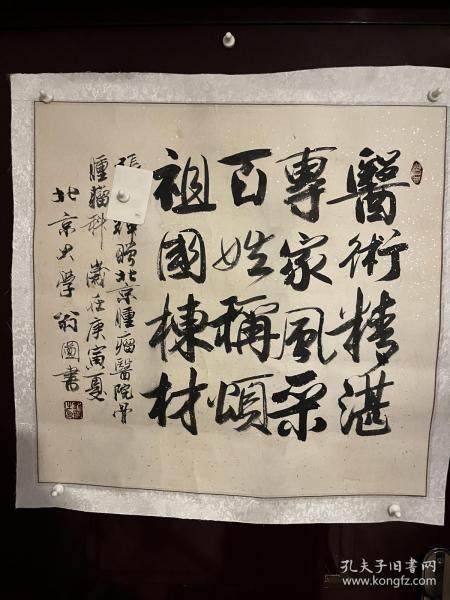 醫術精湛
專家風采
百姓稱頌
祖國棟材
張
贈北京腫瘤醫院骨
腫瘤科 歲在庚寅夏
北京大学翁圖書
孔夫子旧书网
www.kongfz.com